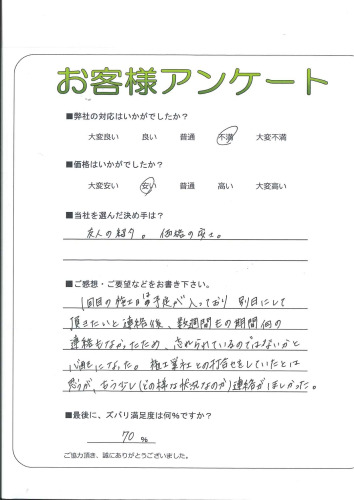 お客様アンケート
■弊社の対応はいかがでしたか?
大変良い 良い 普通 不満 大変不満
■価格はいかがでしたか?
大変安い 安い 普通 高い 大変高い
■当社を選んだ決め手は?
友人の紹介。 価格の安さ。
■ご感想・ご要望などをお書き下さい。
1回目の施工日は予定が入っており 別日にして
頂きたいと連絡後、数週間もの期間何の
連絡もなかったため、忘れられているのではないかと
心配になった。施工業社との打合せをしていたとは
思うが、もう少し(どの様な状況なのか)連絡がほしかった。
■最後に、ズバリ満足度は何%ですか?
70 %
ご協力頂き、誠にありがとうございました。